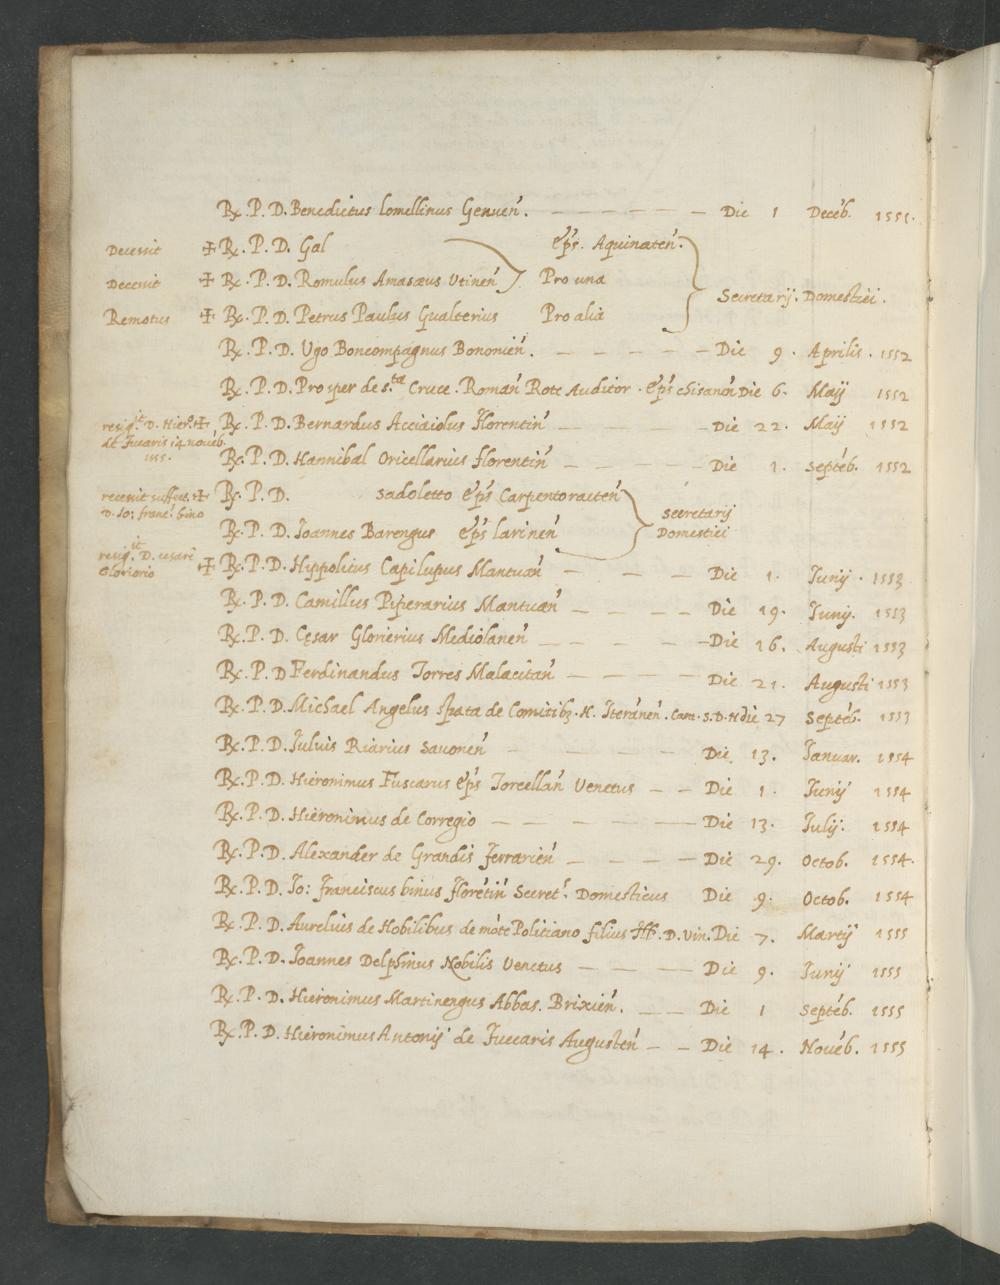 Rx. P. D. Benedictus lomellinus Genuen̄. Die 1 Decēb. 1551.
Decessit ✠ Rx. P. D. Gal ep̄s. Aquinaten̄.
Decessit ✠ Rx. P. D. Romulus Amasæus Utinen̄ Pro una
Secretarij. Domestici.
Remotus ✠ Rx. P. D. Petrus Paulus Gualterius Pro alia
Rx. P. D. Ugo Boncompagnus Bononien̄. Die 9. Aprilis. 1552
Rx. P. D. Prosper de s.ta Cruce. Roman̄ Rote Auditor. Ep̄s chisanon̄ Die 6. Maij 1552
resig.it D. Hier.o ✠ Rx. P. D. Bernardus Acciaiolus Florentin̄ Die 22. Maij 1552
de Fucaris 14 novēb.
1555.
Rx. P. D. Hannibal Oricellarius florentin̄ Die 1. Septēb. 1552
recessit suffec. ✠ Rx. P. D. Sadoletto Ep̄s Carpentoracten̄
D. Io: franc.s bino
secretarij
Domestici
Rx. P. D. Ioannes Barengus Ep̄s larinen̄
resig.it D. cesari
Gloriorio ✠ Rx. P. D. Hippolitus Capilupus Mantuan̄ Die 1. Iunij. 1553
Rx. P. D. Camillus Piperarius Mantuan̄ Die 19. Iunij. 1553
Rx. P. D. Cęsar Glorierius Mediolanen̄ Die 16. Augusti 1553
Rx. P. D Ferdinandus Torres Malacitan̄ Die 21. Augusti 1553
Rx. P. D. Michael Angelus spata de Comitibz. N. Iteranen̄. Cam. S. D. N die 27 Septēb. 1553
Rx. P. D. Iulius Riarius Sauonen̄ Die 13. Ianuar. 1554
Rx. P. D. Hieronimus Fuscarus Ep̄s Torcellan̄ Venetus Die 1. Iunij 1554
Rx. P. D. Hieronimus de Corregio Die 13. Iulij. 1554
Rx. P. D. Alexander de Grandis ferrarien̄ Die 29. Octob. 1554.
Rx. P. D. Io: franciscus binus florētin̄ Secret.s Domesticus Die 9. Octob. 1554
Rx. P. D. Aurelius de Nobilibus de mōte Politiano filius D. Vin. Die 7. Martij 1555
Rx. P. D. Ioannes Delphinus Nobilis Venetus Die 9. Iunij 1555
Rx. P. D. Hieronimus Martinengus Abbas. Brixien̄. Die 1 Septēb. 1555
Rx. P. D. Hieronimus Antonij de Fuccaris Augusten̄ Die 14. Novēb. 1555